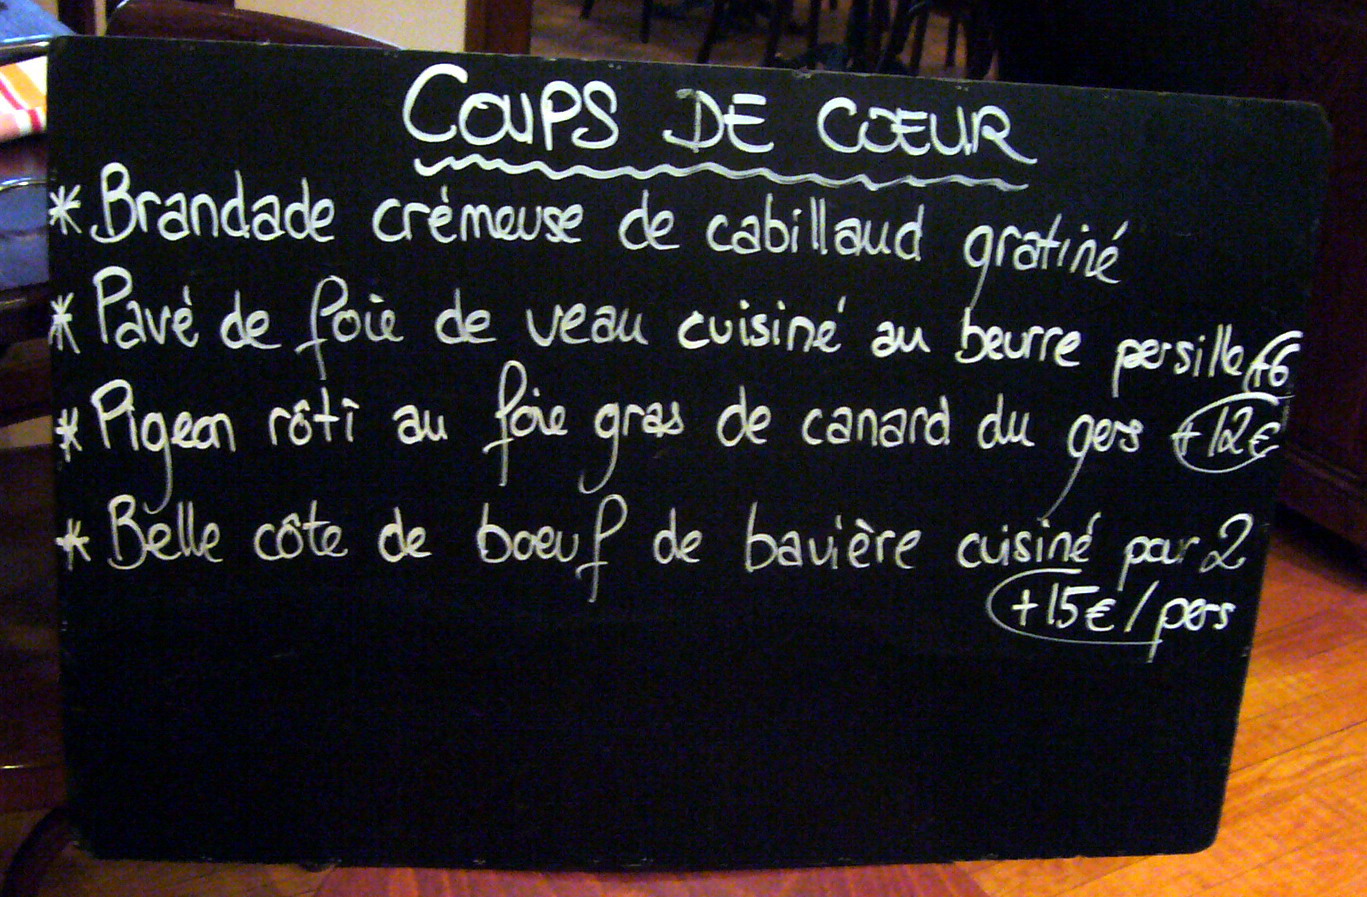 COUPS DE COEUR
* Brandade crémeuse de cabillaud gratiné
* Pavé de foie de veau cuisiné au beurre persille +6
* Pigeon rôti au foie gras de canard du gers +12€
* Belle côte de boeuf de bavière cuisiné pour 2
+15€/pers